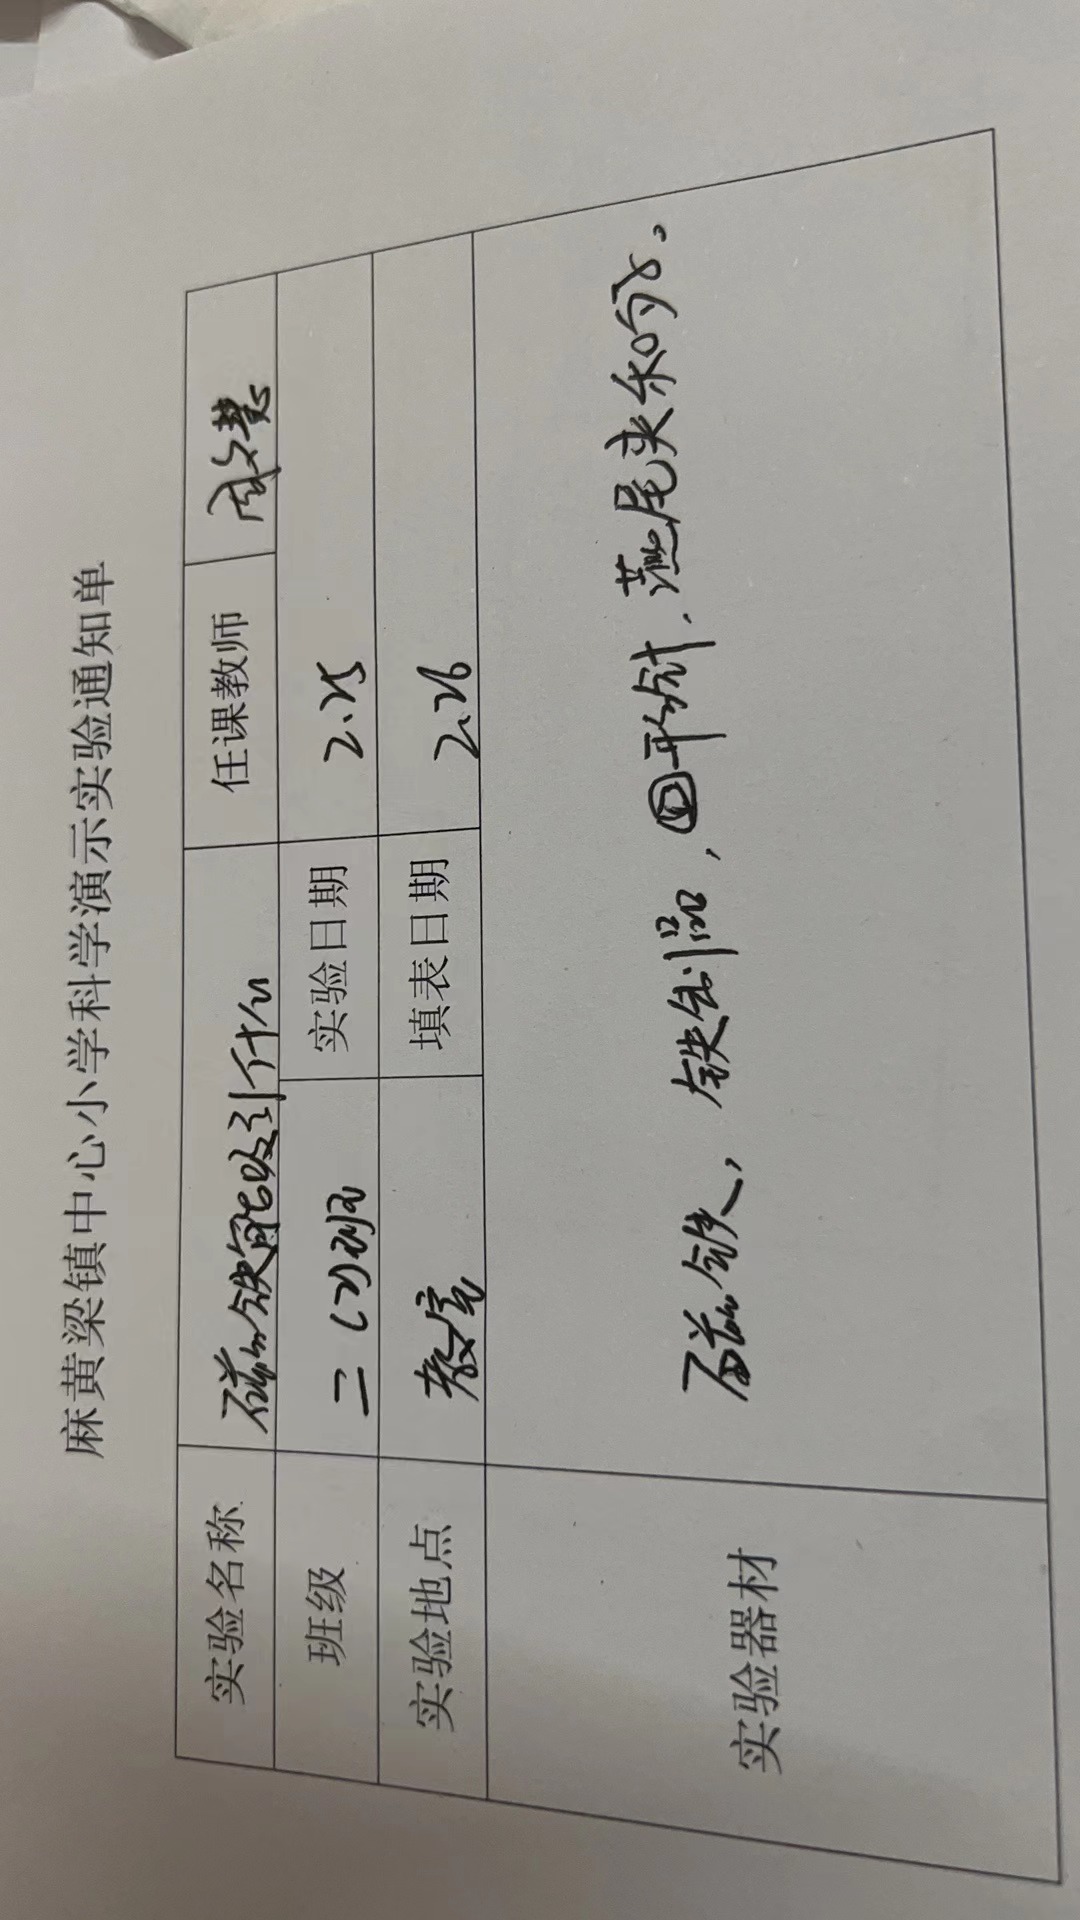 麻黄梁镇中心小学科学演示实验通知单
实验名称 磁铁能吸引什么 任课教师
班级 二(2)班 实验日期 2.25
实验地点 教室 填表日期 2.26
实验器材 磁铁，铁制品，回形针、燕尾夹